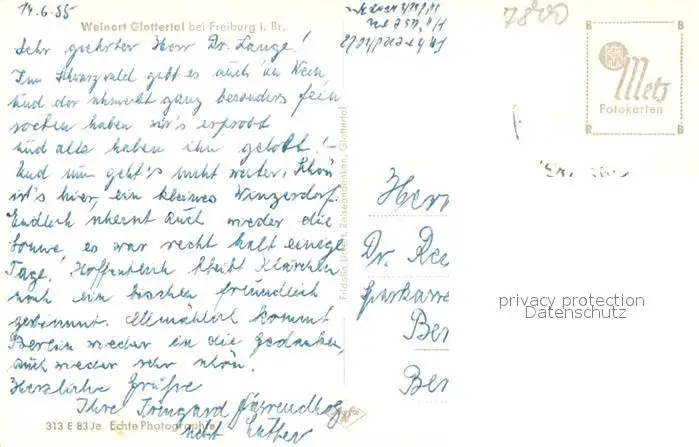 14.6.55
Weinort Glottertal bei Freiburg i. Br.
Sehr geehrter Herr Dr. Lange!
Im Schwarzwald gibt es auch 'nen Wein,
und der schmeckt ganz besonders fein
soeben haben wir's erprobt
und alle haben ihn gelobt! -
Und nun geht's nicht weiter. Schön
ist's hier, ein kleines Winzerdorf.
Endlich scheint auch wieder die
Sonne, es war recht kalt einige
Tage! Hoffentlich bleibt Klärchen
noch ein bischen freundlich
gesinnt. Allmählich kommt
Berlin wieder in die Gedanken,
auch wieder sehr schön.
Herzliche Grüße
Ihre Irmgard
nebst Mutter
313 E 83 Je Echte Photographie
Fridolin Reiseandenken, Glottertal
7800
Metz
Fotokarten
B
R
B
R
Herr
Dr.
Sparkasse
Ber
Ber
privacy protection
Datenschutz